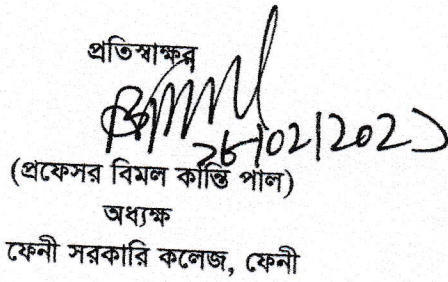 প্রতিস্বাক্ষর
(প্রফেসর বিমল কান্তি পাল)
অধ্যক্ষ
ফেনী সরকারি কলেজ, ফেনী